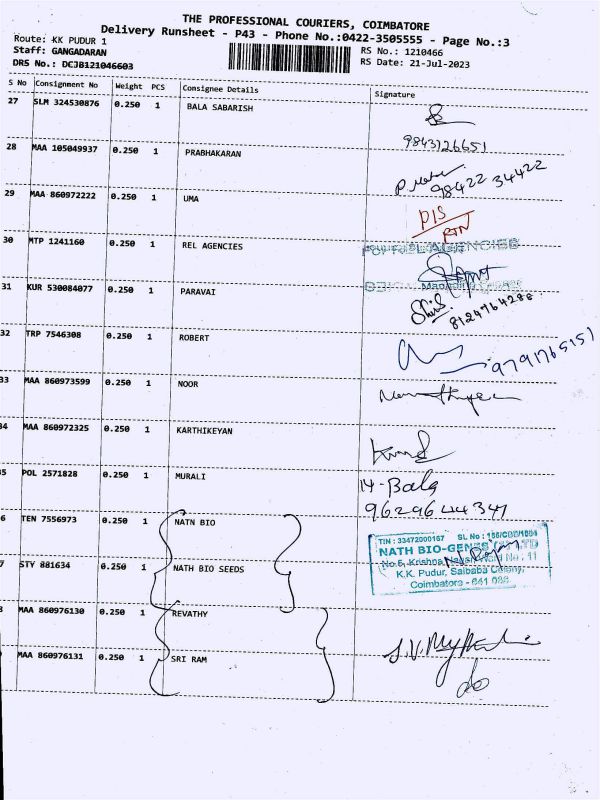 THE PROFESSIONAL COURIERS, COIMBATORE
Delivery Runsheet - P43 - Phone No.:0422-3505555 - Page No.:3
Route: KK PUDUR 1
RS No.: 1210466
Staff: GANGADARAN
RS Date: 21-Jul-2023
DRS No.: DCJB121046603
S No Consignment No Weight PCS Consignee Details Signature
27 SLM 324530876 0.250 1 BALA SABARISH
9843126651
28 MAA 105049937 0.250 1 PRABHAKARAN
98422 34422
29 MAA 860972222 0.250 1 UMA
D/S
RTN
30 MTP 1241160 0.250 1 REL AGENCIES
For REL AGENCIES
31 KUR 530084077 0.250 1 PARAVAI
8124764288
32 TRP 7546308 0.250 1 ROBERT
9791765151
33 MAA 860973599 0.250 1 NOOR
34 MAA 860972325 0.250 1 KARTHIKEYAN
35 POL 2571828 0.250 1 MURALI
14-Bala
9629644347
6 TEN 7556973 0.250 1 NATN BIO
TIN : 33472000167 SL No : 166/CBD/1004
NATH BIO-GENES LTD
No.6, Krishna Nagar, Ward No : 11
K.K. Pudur, Saibaba Colony,
Coimbatore - 641 038
7 STY 881634 0.250 1 NATH BIO SEEDS
8 MAA 860976130 0.250 1 REVATHY
MAA 860976131 0.250 1 SRI RAM
do